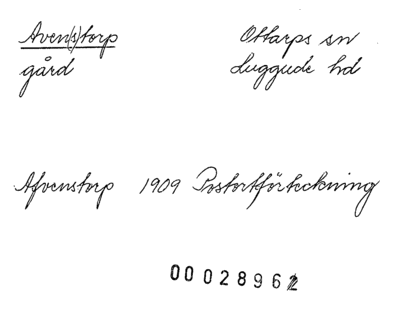 Aven(s)torp Ottarps sn
gård Luggude hd
Afvenstorp 1909 Postortförteckning
00028962